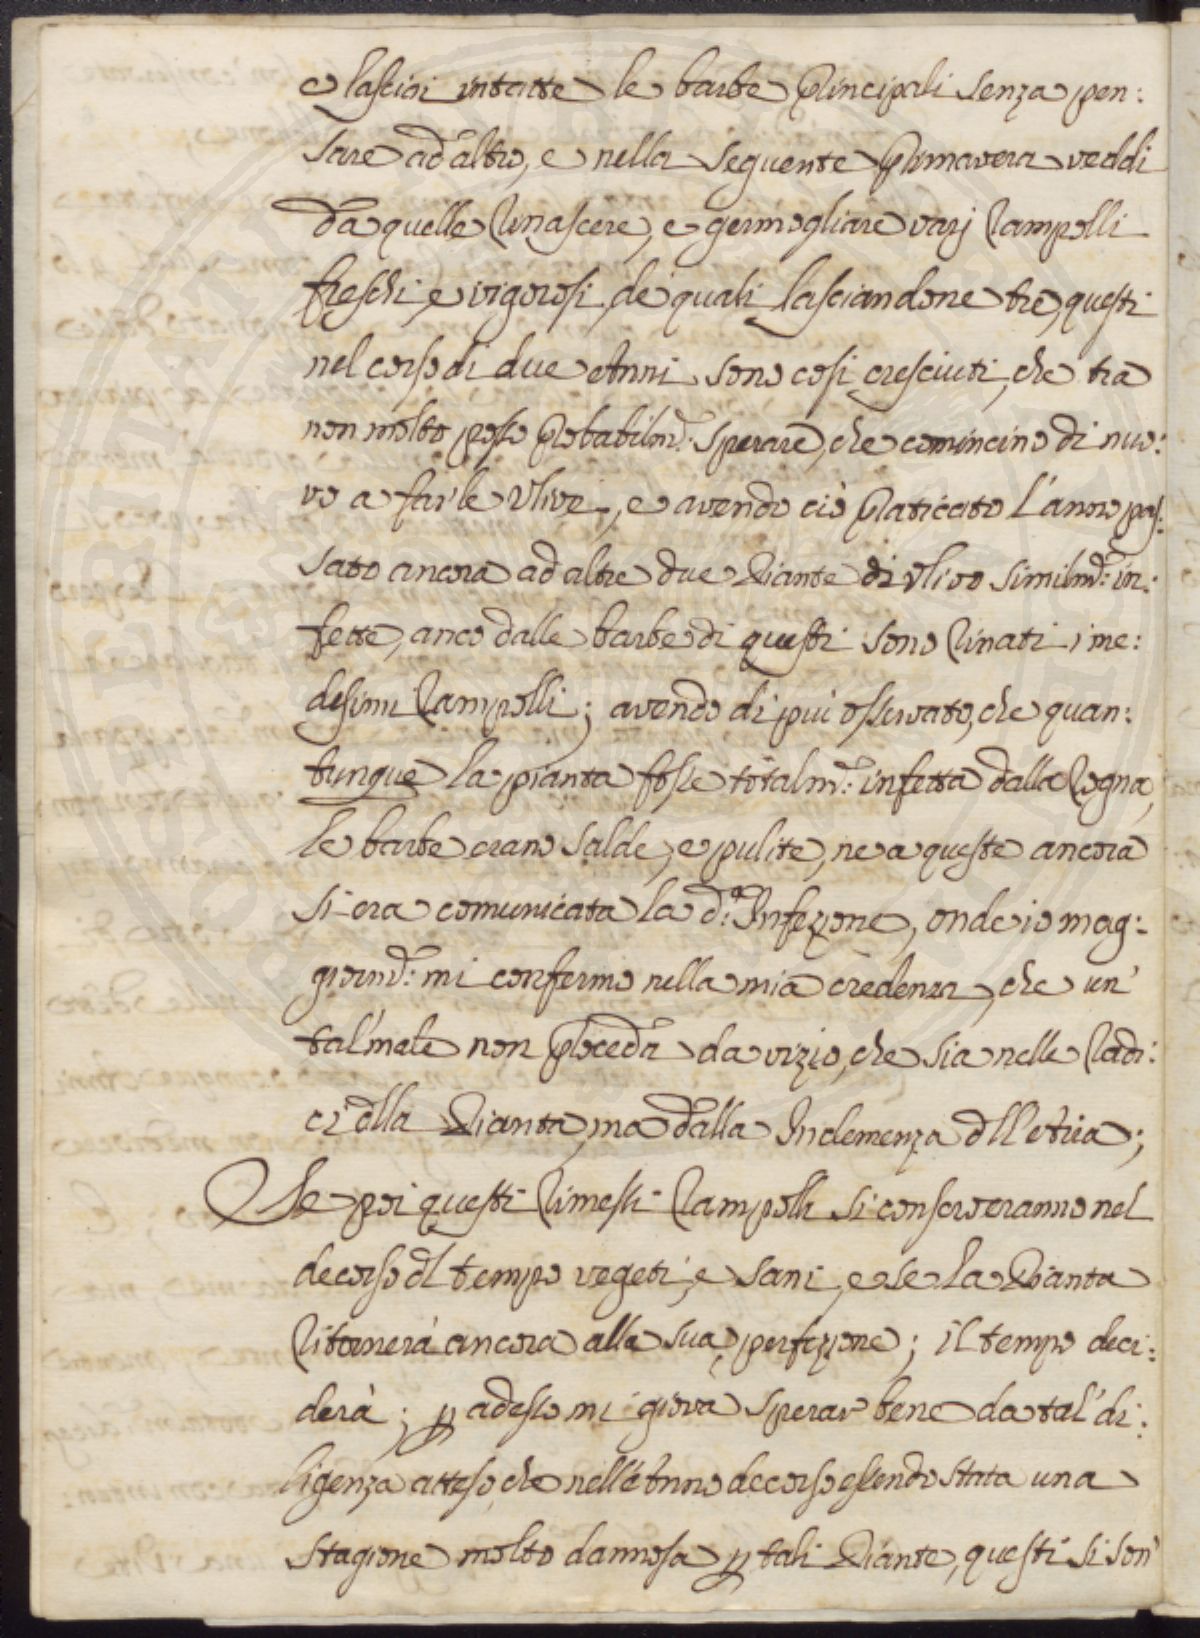 e lasciai intatte le barbe Principali senza pen:
sare ad altro, e nella seguente Primavera veddi
da quelle Rinascere, e germogliare varj Rampolli
freschi, e vigorosi, de quali lasciandone trè, questi
nel corso di due Anni sono così cresciuti, che trà
non molto posso Probabilm.e: sperare, che comincino di nuo:
vo a far le Ulive, e avendo ciò Praticato l'anno pas:
sato ancora ad altre due Piante di Ulivo similm.e: in:
fette, anco dalle barbe di questi sono Rinati i me:
desimi Rampolli; avendo di più osservato, che quan:
tunque la pianta fosse totalm.e: infetta dalla Rogna,
le barbe erano salde, e pulite, ne a queste ancora
si era comunicata la d.a: Infezione, onde io mag:
giorm.e: mi confermo nella mia credenza, che un'
tal' male non Proceda da vizio, che sia nelle Radi:
ci dlla Pianta, ma dalla Inclemenza dll'Aria;
Se poi questi Rimessi Rampolli si conserveranno nel
decorso dl tempo vegeti, e sani, e se la Pianta
Ritornerà ancora alla sua perfezione; il tempo deci:
derà; p adesso mi giova sperar bene da tal' di:
ligenza atteso, che nell'Anno decorso essendo stata una
stagione molto dannosa p tali Piante, questi si son'